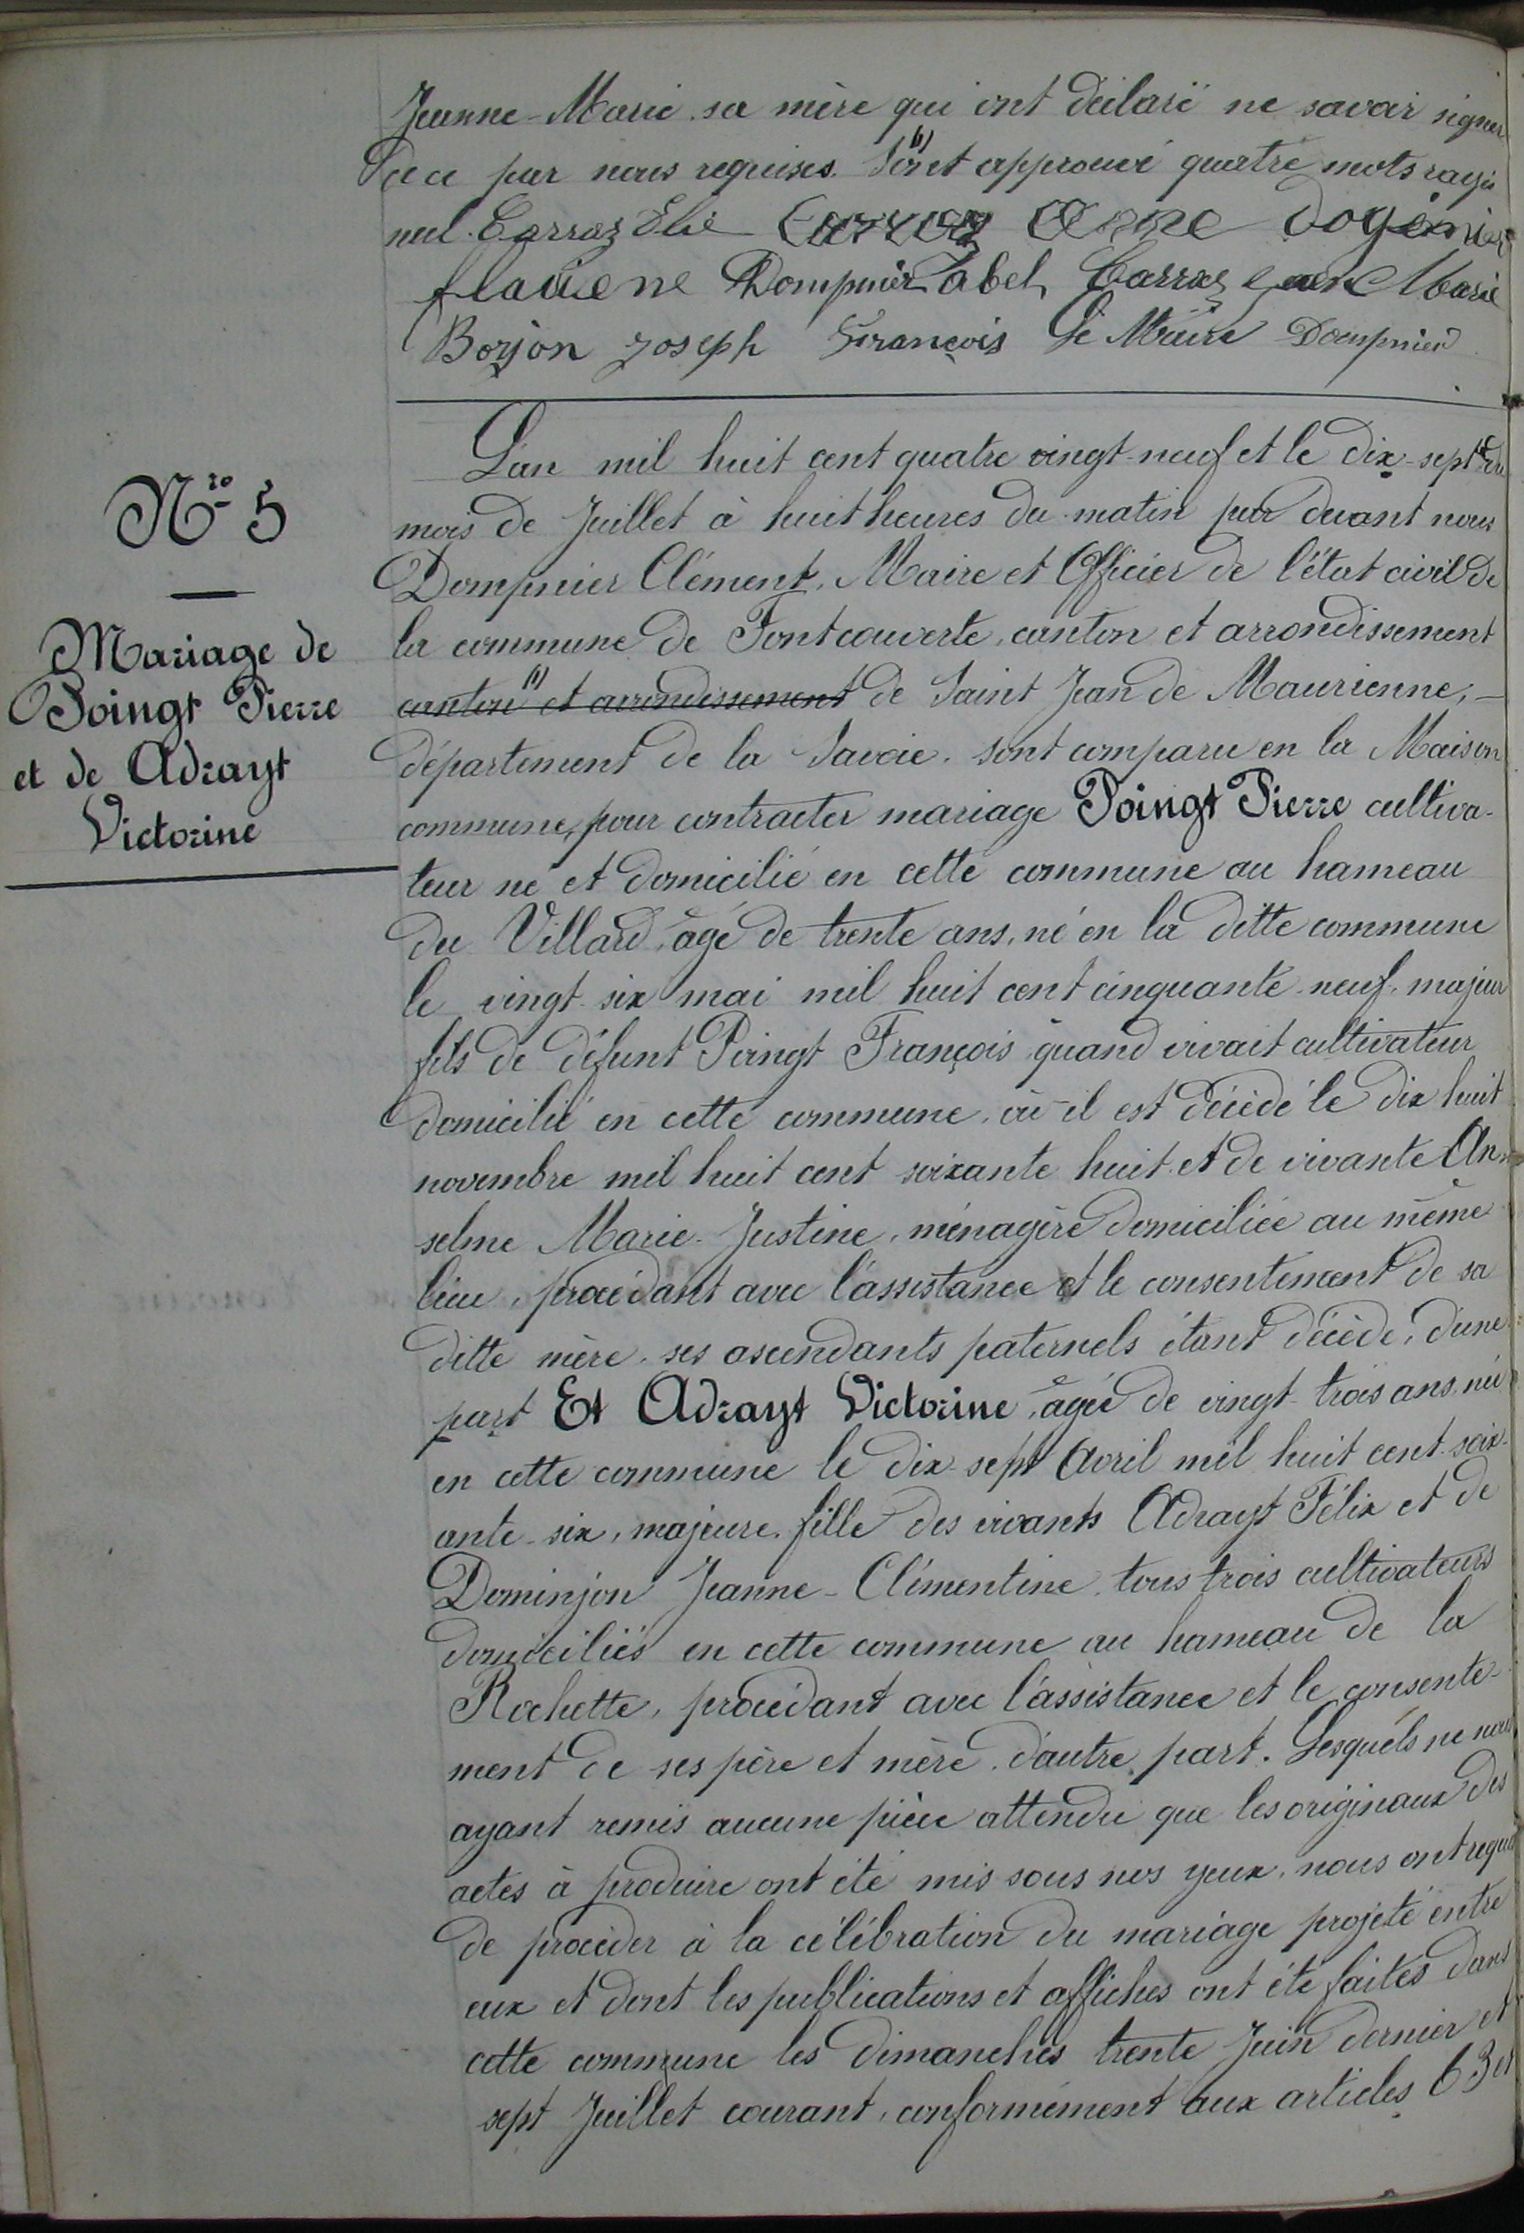 Jeanne-Marie sa mère qui ont déclaré ne savoir signer
de ce par nous requises. (1) Sont approuvé quatre mots rayés
nul. Carraz Elie Carraz Anne Dogénier
flaviene Dompnier abel Carraz Jean Marie
Borjon Joseph François Le Maire Dompnier
Nro 5
Mariage de
Poingt Pierre
et de Adrayt
Victorine
L'an mil huit cent quatre vingt-neuf et le dix-sept du
mois de Juillet à huit heures du matin par devant nous
Dompnier Clément, Maire et Officier de l'état civil de
la commune de Fontcouverte, canton et arrondissement
canton (1) et arrondissement de Saint Jean de Maurienne,
département de la Savoie. sont comparu en la Maison
commune, pour contracter mariage Poingt Pierre cultiva-
teur né et domicilié en cette commune au hameau
du Villard, âgé de trente ans, né en la ditte commune
le vingt-six mai mil huit cent cinquante-neuf, majeur
fils de défunt Poingt François quand vivait cultivateur
domicilié en cette commune, où il est décédé le dix huit
novembre mil huit cent soixante huit et de vivante An-
selme Marie-Justine, ménagère domiciliée au même
lieu, procédant avec l'assistance et le consentement de sa
ditte mère, ses ascendants paternels étant décédé, d'une
part Et Adrayt Victorine, âgée de vingt-trois ans, née
en cette commune le dix-sept Avril mil huit cent soix-
ante-six, majeure, fille des vivants Adrayt Félix et de
Dominjon Jeanne-Clémentine, tous trois cultivateurs
domiciliés en cette commune au hameau de la
Rochette, procédant avec l'assistance et le consente-
ment de ses père et mère, d'autre part. Lesquels ne nous
ayant remis aucune pièce attendu que les originaux des
actes à produire ont été mis sous nos yeux, nous ont requis
de procéder à la célébration du mariage projeté entre
eux et dont les publications et affiches ont été faites dans
cette commune les dimanches trente Juin dernier et
sept Juillet courant, conformément aux articles 63 et